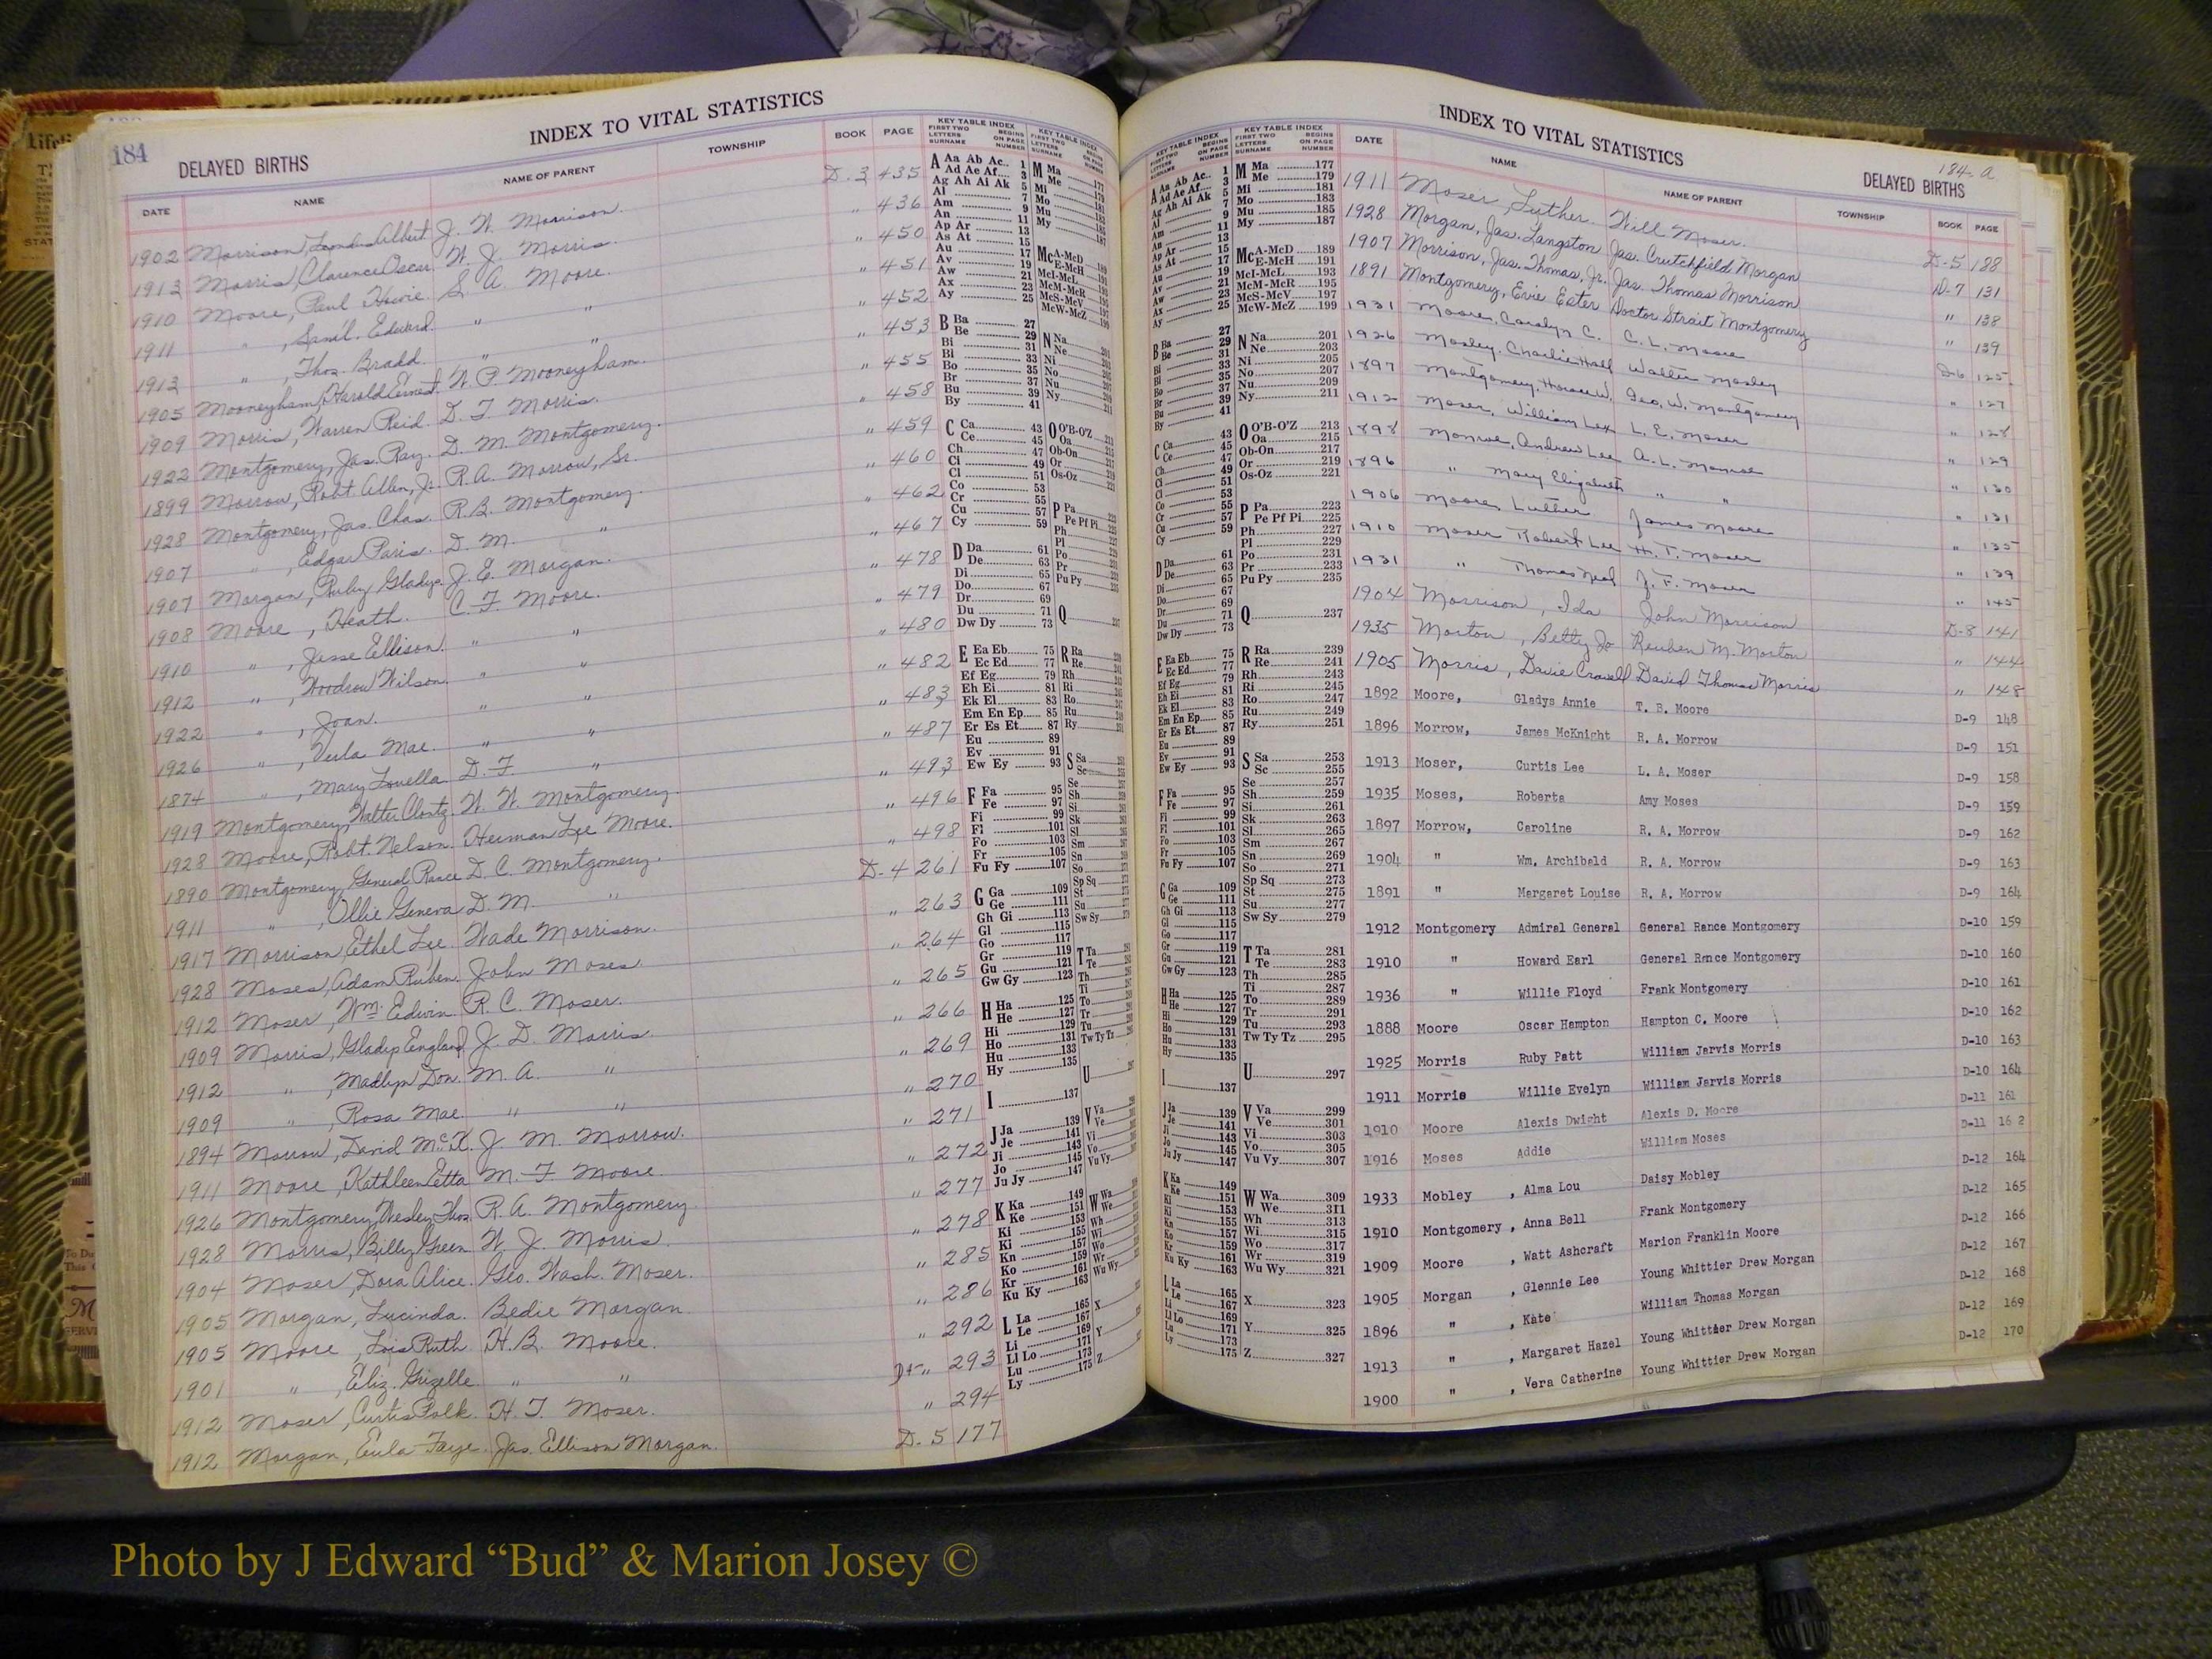 184
DELAYED BIRTHS
INDEX TO VITAL STATISTICS
DATE NAME NAME OF PARENT TOWNSHIP BOOK PAGE
1902 Morrison, Albert J. W. Morrison. D. 3 435
1913 Morris, Clarence Oscar W. J. Morris. " 436
1910 Moore, Paul Howie. S. A. Moore. " 450
1911 " , Sam'l. Edward. " " " 451
1913 " , Thos. Bradd. " " " 452
1905 Mooneyham, Harold Ernest. W. P. Mooneyham. " 453
1909 Morris, Warren Reid. D. F. Morris. " 455
1922 Montgomery, Jas. Ray. D. M. Montgomery. " 458
1899 Morrow, Robt. Allen, Jr. R. A. Morrow, Sr. " 459
1928 Montgomery, Jas. Chas. R. B. Montgomery. " 460
1907 " , Edgar Paris. D. M. " " 462
1907 Morgan, Ruby Gladys. J. E. Morgan. " 467
1908 Moore, Heath. C. F. Moore. " 478
1910 " , Jesse Ellison. " " " 479
1912 " , Woodrow Wilson. " " " 480
1922 " , Joan. " " " 482
1926 " , Veula Mae. " " " 483
1874 " , Mary Louella. D. F. " " 487
1919 Montgomery, Walter Clontz. W. W. Montgomery. " 493
1928 Moore, Robt. Nelson. Herman Lee Moore. " 496
1890 Montgomery, General Rance D. C. Montgomery. " 498
1911 " , Ollie Geneva D. M. " D-4 261
1917 Morrison, Ethel Lee. Wade Morrison. " 263
1928 Moses, Adam Ruben. John Moses " 264
1912 Moser, Wm. Edwin R. C. Moser. " 265
1909 Morris, Gladys England J. D. Morris. " 266
1912 " , Madlyn Don. M. A. " " 269
1909 " , Rosa Mae. " " " 270
1894 Morrow, David McK. J. M. Morrow. " 271
1911 Moore, Kathleen Etta M. F. Moore. " 272
1926 Montgomery, Wesley Thos. R. A. Montgomery. " 277
1928 Morris, Billy Green W. J. Morris. " 278
1904 Moser, Dora Alice. Geo. Wash. Moser. " 285
1905 Morgan, Lucinda. Bedie Morgan. " 286
1905 Moore, Lois Ruth H. B. Moore. " 292
1901 " , Eliz. Grizelle. " " D4 " 293
1912 Moser, Curtis Polk. H. T. Moser. " 294
1912 Morgan, Eula Faye. Jas. Ellison Morgan. D. 5 177
KEY TABLE INDEX
FIRST TWO LETTERS SURNAME BEGINS ON PAGE NUMBER
A Aa Ab Ac.. 1
A Ad Ae Af.... 3
Ag Ah Ai Ak 5
Al 7
Am 9
An 11
Ap Ar 13
As At 15
Au 17
Av 19
Aw 21
Ax 23
Ay 25
B Ba 27
Be 29
Bi 31
Bl 33
Bo 35
Br 37
Bu 39
By 41
C Ca 43
Ce 45
Ch 47
Ci 49
Cl 51
Co 53
Cr 55
Cu 57
Cy 59
D Da 61
De 63
Di 65
Do 67
Dr 69
Du 71
Dw Dy 73
E Ea Eb 75
Ec Ed 77
Ef Eg 79
Eh Ei 81
Ek El 83
Em En Ep 85
Er Es Et 87
Eu 89
Ev 91
Ew Ey 93
F Fa 95
Fe 97
Fi 99
Fl 101
Fo 103
Fr 105
Fu Fy 107
G Ga 109
Ge 111
Gh Gi 113
Gl 115
Go 117
Gr 119
Gu 121
Gw Gy 123
H Ha 125
He 127
Hi 129
Ho 131
Hu 133
Hy 135
I 137
J Ja 139
Je 141
Ji 143
Jo 145
Ju Jy 147
K Ka 149
Ke 151
Ki 153
Ki 155
Kn 157
Ko 159
Kr 161
Ku Ky 163
L La 165
Le 167
Li 169
Ll Lo 171
Lu 173
Ly 175
INDEX TO VITAL STATISTICS
184-A
DELAYED BIRTHS
KEY TABLE INDEX
FIRST TWO LETTERS SURNAME BEGINS ON PAGE NUMBER
M Ma 177
Me 179
Mi 181
Mo 183
Mu 185
My 187
Mc A-McD 189
E-McH 191
McI-McL 193
McM-McR 195
McS-McV 197
McW-McZ 199
N Na 201
Ne 203
Ni 205
No 207
Nu 209
Ny 211
O O'B-O'Z 213
Oa 215
Ob-On 217
Or 219
Os-Oz 221
P Pa 223
Pe Pf Pi 225
Ph 227
Pl 229
Po 231
Pr 233
Pu Py 235
Q 237
R Ra 239
Re 241
Rh 243
Ri 245
Ro 247
Ru 249
Ry 251
S Sa 253
Sc 255
Se 257
Sh 259
Si 261
Sk 263
Sl 265
Sm 267
Sn 269
So 271
Sp Sq 273
St 275
Su 277
Sw Sy 279
T Ta 281
Te 283
Th 285
Ti 287
To 289
Tr 291
Tu 293
Tw Ty Tz 295
U 297
V Va 299
Ve 301
Vi 303
Vo 305
Vu Vy 307
W Wa 309
We 311
Wh 313
Wi 315
Wo 317
Wr 319
Wu Wy 321
X 323
Y 325
Z 327
DATE NAME NAME OF PARENT TOWNSHIP BOOK PAGE
1911 Moser, Luther. Will Moser. D-5 188
1928 Morgan, Jas. Langston Jas. Crutchfield Morgan D-7 131
1907 Morrison, Jas. Thomas, Jr. Jas. Thomas Morrison " 138
1891 Montgomery, Evie Ester Doctor Strait Montgomery " 139
1931 Moore, Carolyn C. C. L. Moore D-6 125
1926 Mosley, Charlie Hall Walter Mosley " 127
1897 Montgomery, Horace W. Geo. W. Montgomery " 128
1912 Moser, William Lex L. E. Moser " 129
1898 Monroe, Andrew Lee A. L. Monroe " 130
1896 " Mary Elizabeth " " " 131
1906 Moore, Luther James Moore " 135
1910 Moser Robert Lee H. T. Moser " 139
1931 " Thomas Neal J. F. Moser " 145
1904 Morrison, Ida John Morrison D-8 141
1935 Morton, Betty Jo Reuben M. Morton " 144
1905 Morris, Davie Crowell David Thomas Morris " 148
1892 Moore, Gladys Annie T. B. Moore D-9 148
1896 Morrow, James McKnight R. A. Morrow D-9 151
1913 Moser, Curtis Lee L. A. Moser D-9 158
1935 Moses, Roberta Amy Moses D-9 159
1897 Morrow, Caroline R. A. Morrow D-9 162
1904 " Wm. Archibald R. A. Morrow D-9 163
1891 " Margaret Louise R. A. Morrow D-9 164
1912 Montgomery Admiral General General Rance Montgomery D-10 159
1910 " Howard Earl General Rance Montgomery D-10 160
1936 " Willie Floyd Frank Montgomery D-10 161
1888 Moore Oscar Hampton Hampton C. Moore D-10 162
1925 Morris Ruby Patt William Jarvis Morris D-10 163
1911 Morris Willie Evelyn William Jarvis Morris D-10 164
1910 Moore Alexis Dwight Alexis D. Moore D-11 161
1916 Moses Addie William Moses D-11 16 2
1933 Mobley , Alma Lou Daisy Mobley D-12 164
1910 Montgomery , Anna Bell Frank Montgomery D-12 165
1909 Moore , Watt Ashcraft Marion Franklin Moore D-12 166
1905 Morgan , Glennie Lee Young Whittier Drew Morgan D-12 167
1896 " , Kate William Thomas Morgan D-12 168
1913 " , Margaret Hazel Young Whittier Drew Morgan D-12 169
1900 " , Vera Catherine Young Whittier Drew Morgan D-12 170
Photo by J Edward “Bud” & Marion Josey ©